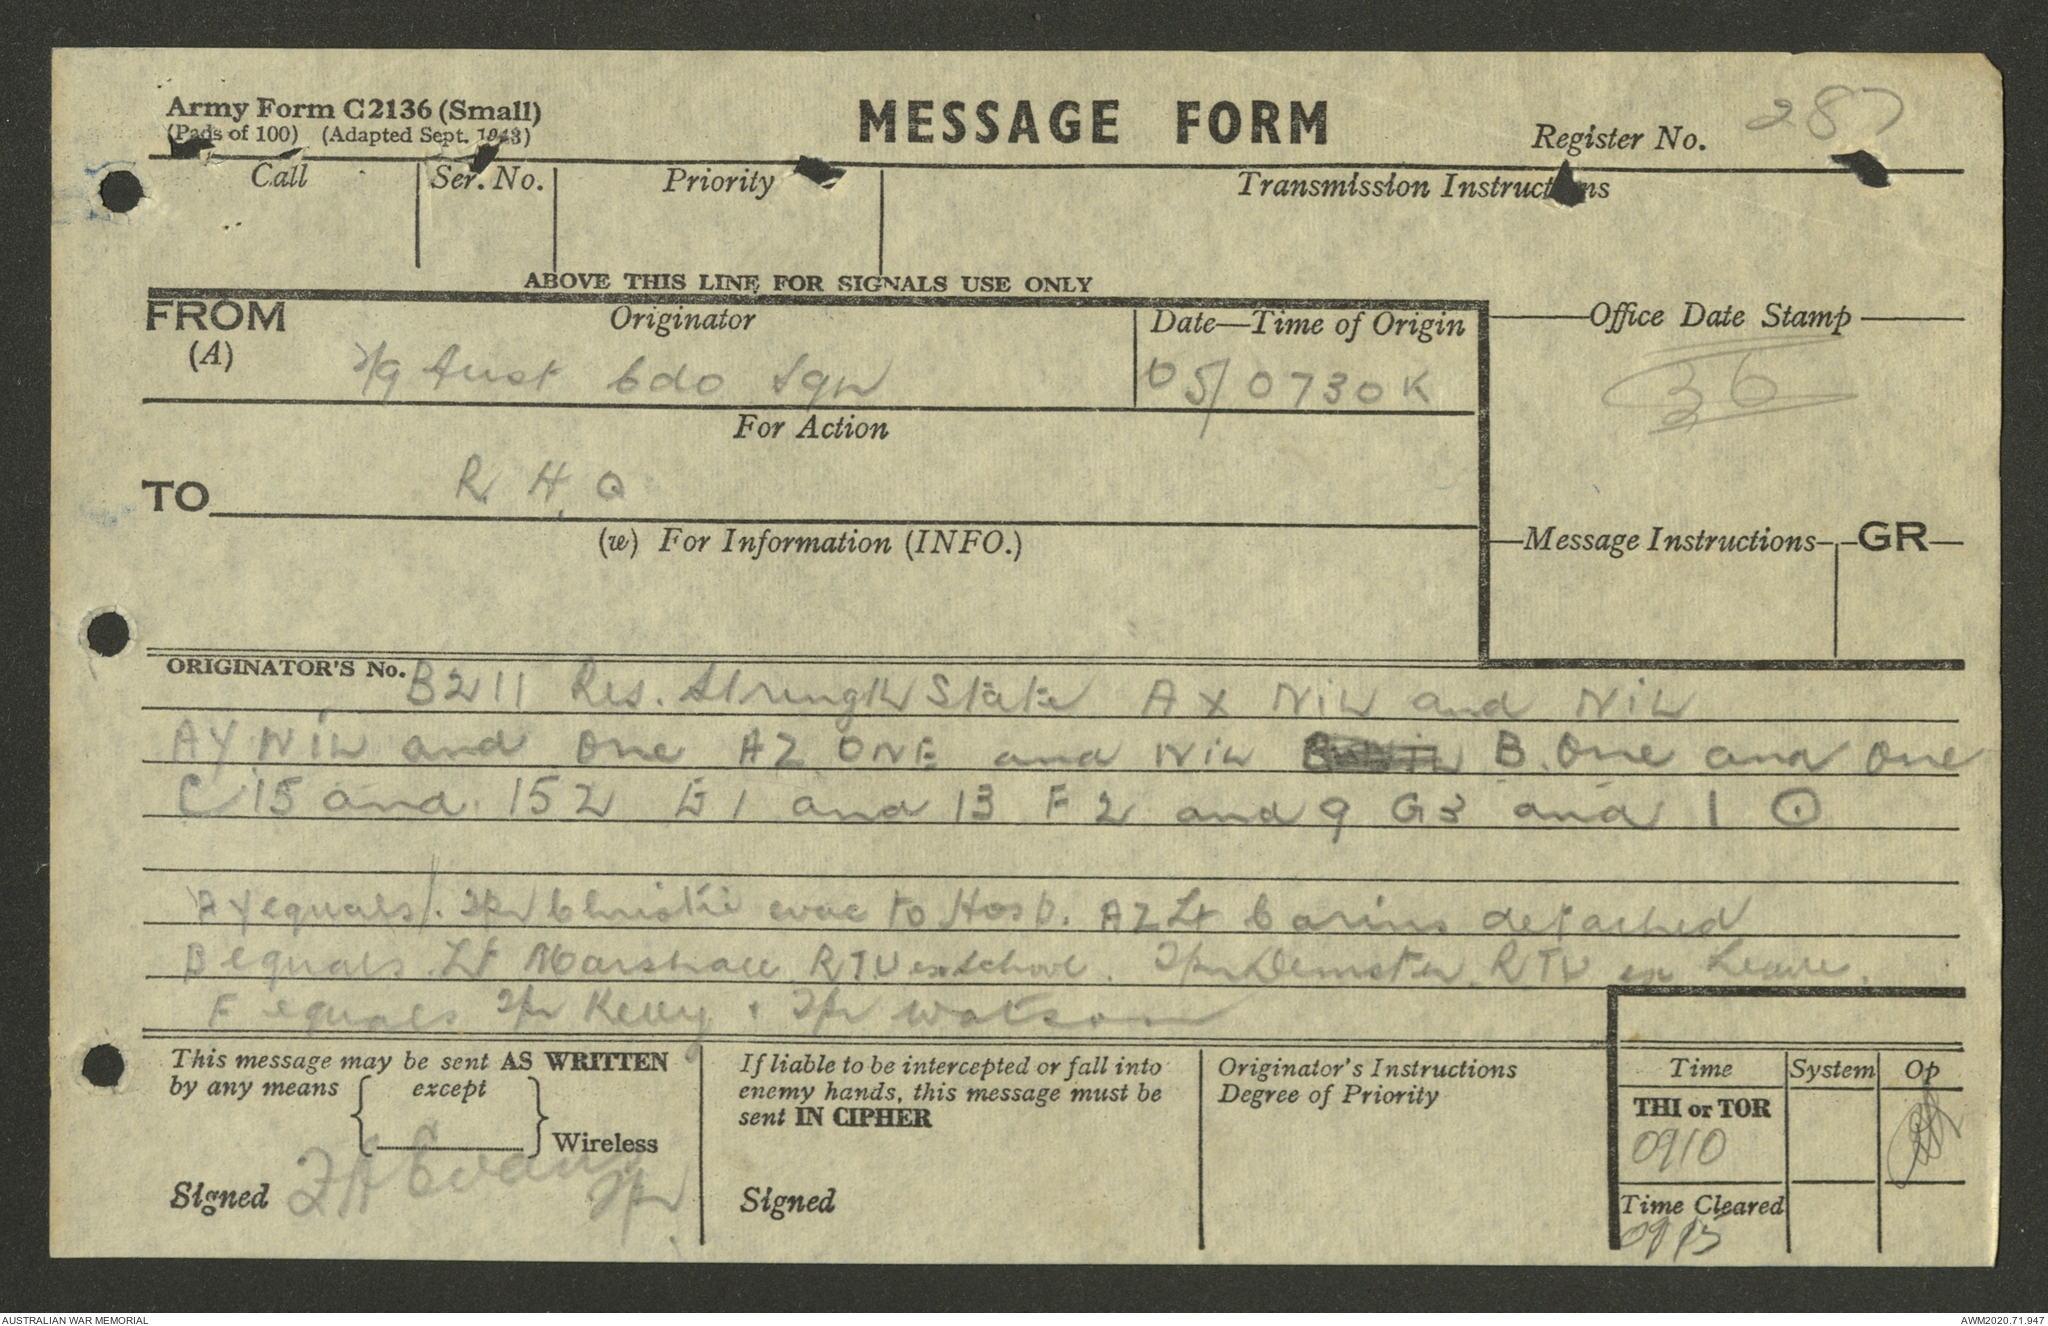 Army Form C2136 (Small)
(Pads of 100) (Adapted Sept. 1943)
MESSAGE FORM
Register No. 287
Call
Ser. No.
Priority
Transmission Instructions
ABOVE THIS LINE FOR SIGNALS USE ONLY
FROM
(A)
Originator
2/9 Aust Cdo Sqn
Date—Time of Origin
05/0730K
Office Date Stamp
36
For Action
TO
R.H.Q
(w) For Information (INFO.)
Message Instructions
GR
ORIGINATOR'S No. B211 Res. Strength State AX NIL and NIL
AY NIL and One AZ ONE and NIL B. One and One
C 15 and 152 E 1 and 13 F 2 and 9 G3 and 1 ⊙
AY equals Tpr Christie evac to Hosp. AZ Lt Cairns detached
B equals Lt Marshall RTU ex School. Tpr Demster RTU ex Leave.
F equals Tpr Kelly & Tpr Watson
This message may be sent AS WRITTEN
by any means { except } Wireless
Signed
Evans Tpr
If liable to be intercepted or fall into
enemy hands, this message must be
sent IN CIPHER
Signed
Originator's Instructions
Degree of Priority
Time
System
Op
THI or TOR
0910
Time Cleared
0915
AUSTRALIAN WAR MEMORIAL
AWM2020.71.947